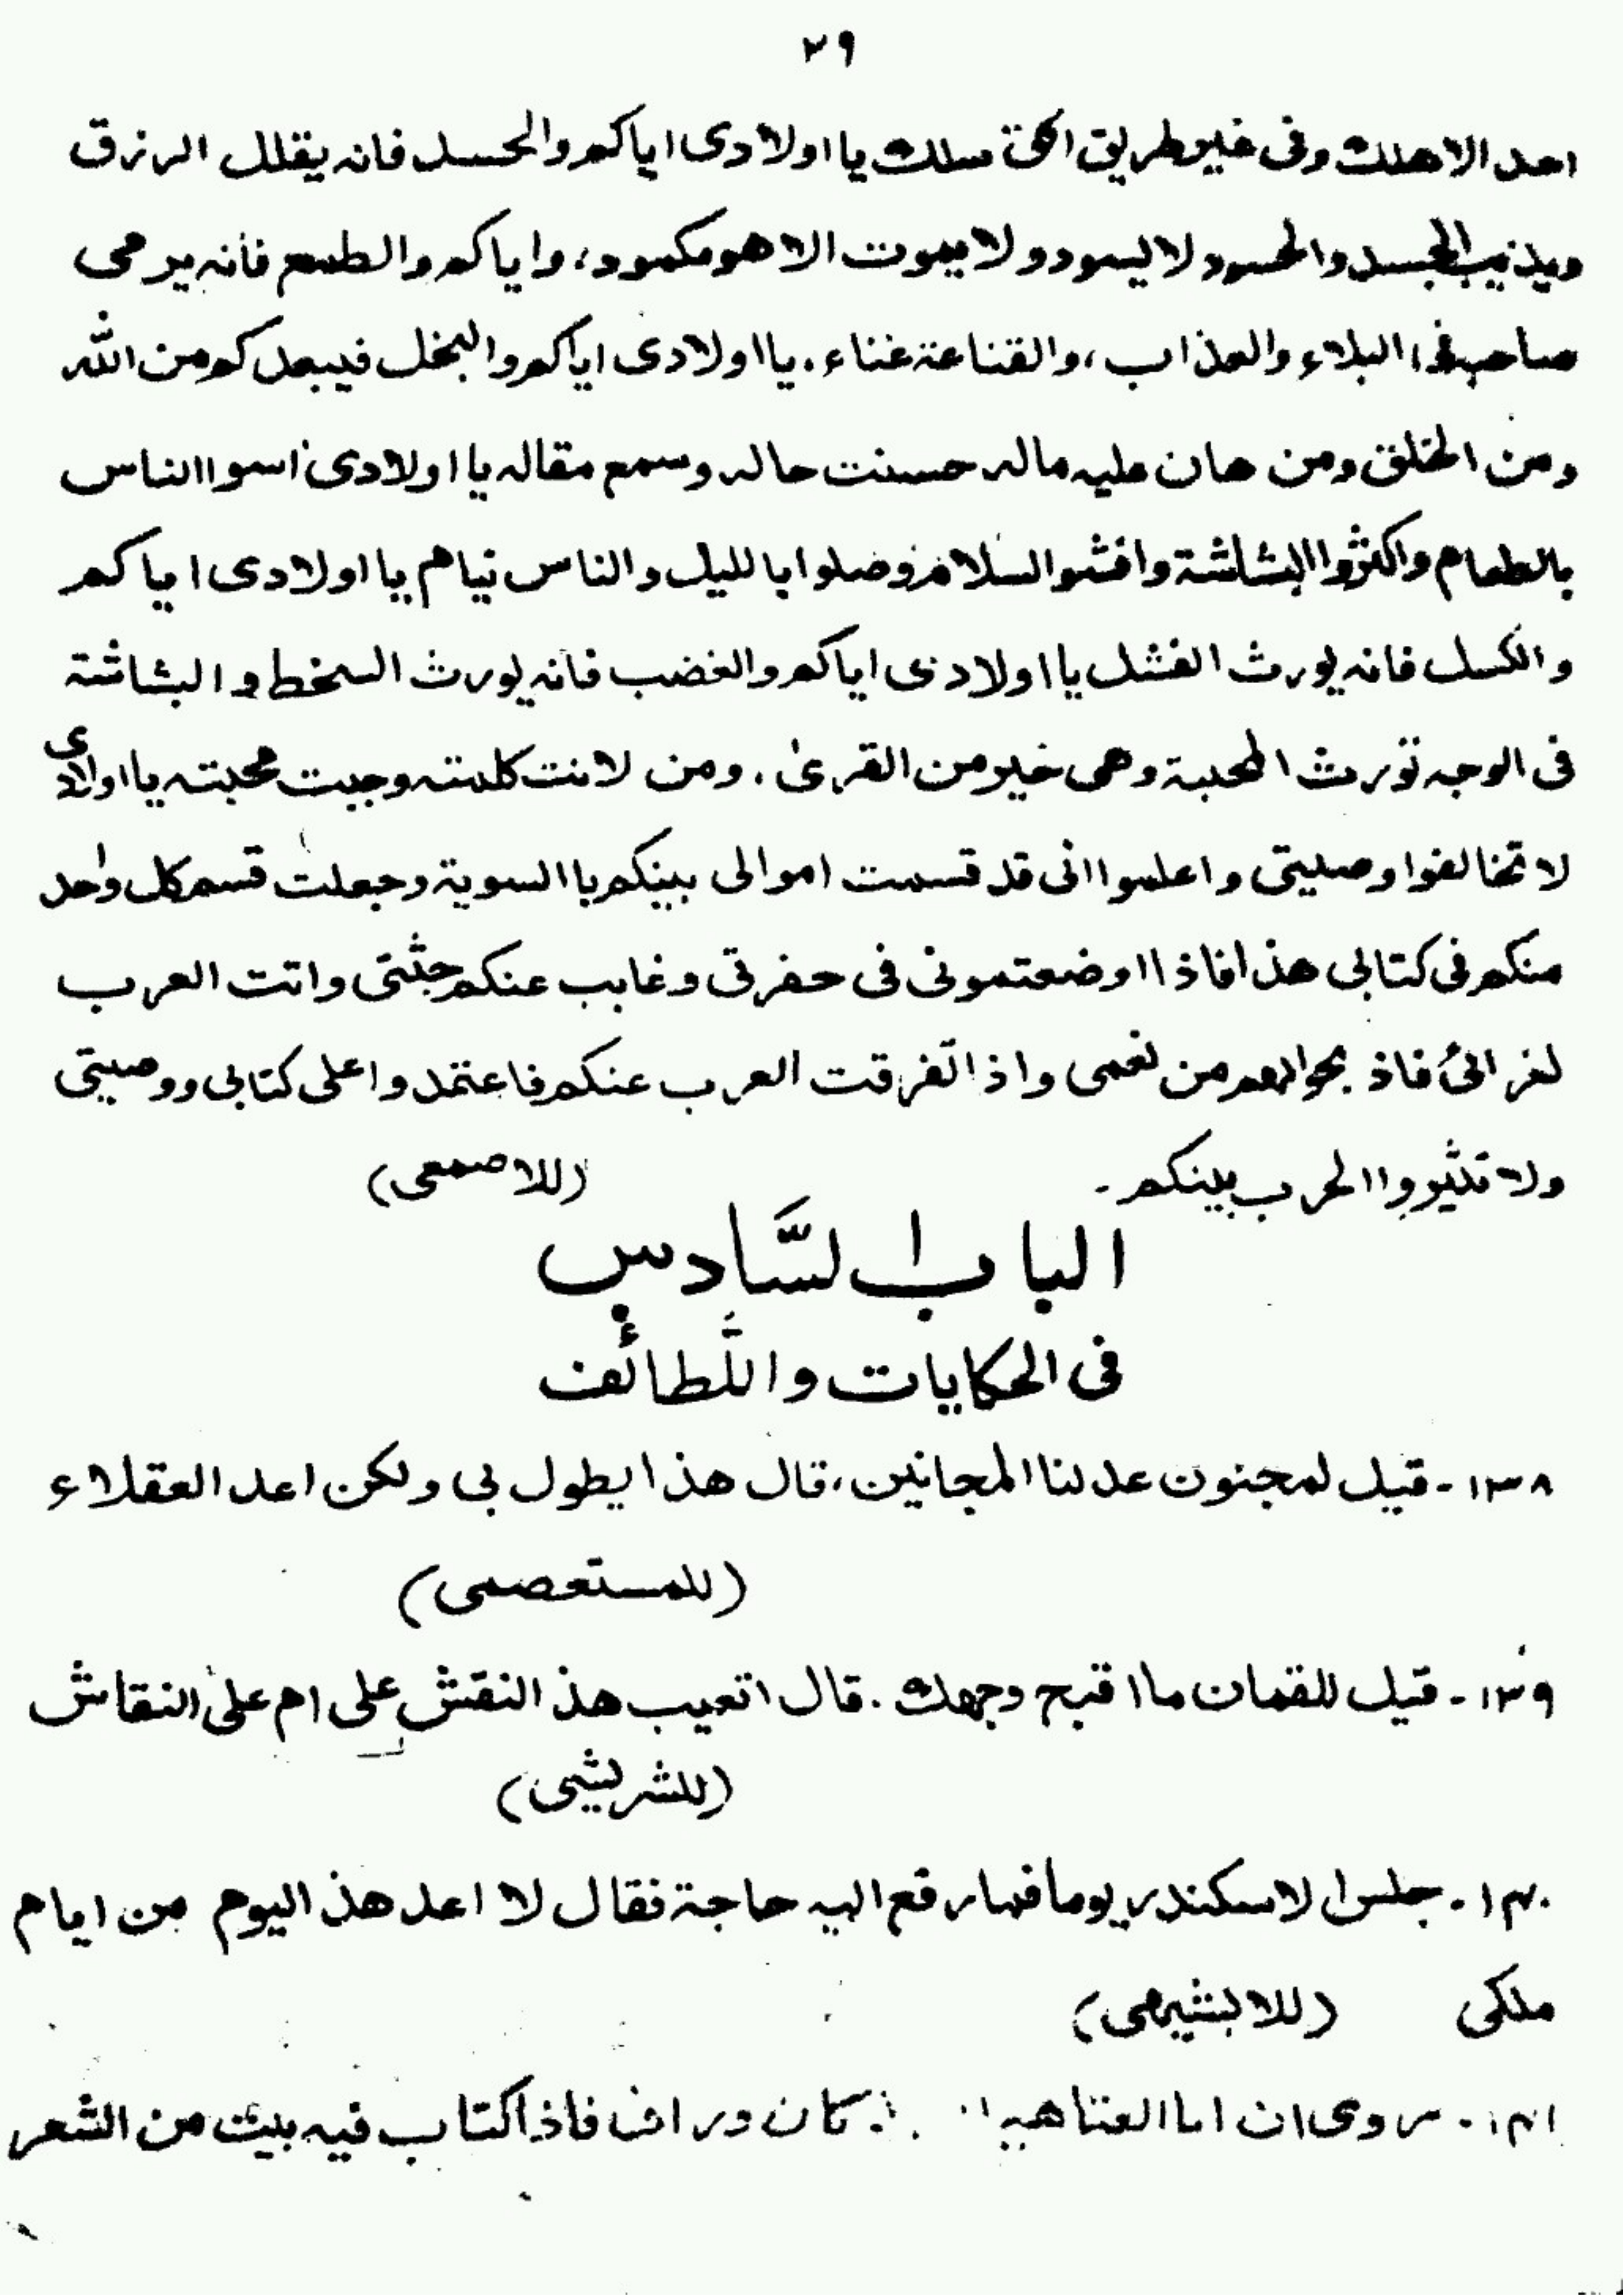 ٢٩
احد الا هلك وفى غير طريق الحق سلك يا اولادى اياكم والحسد فانه يقلل الرزق
ويذيب الجسد والحسود لا يسود ولا يموت الا هو مكمود، واياكم والطمع فانه يرمى
صاحبه فى البلاء والعذاب، والقناعة غناء. يا اولادى اياكم والبخل فيبعدكم من الله
ومن الخلق ومن هان عليه ماله حسنت حاله وسمع مقاله يا اولادى اسوا الناس
بالطعام واكثروا البشاشة وافشوا السلام وصلوا با لليل والناس نيام يا اولادى اياكم
والكسل فانه يورث الفشل يا اولادى اياكم والغضب فانه يورث السخط و البشاشة
فى الوجه تورث المحبة وهى خير من القرى. ومن لانت كلمته وجبت محبته يا اولادى
لا تخالفوا وصيتى واعلموا انى قد قسمت اموالى بينكم با السوية وجعلت قسم كل واحد
منكم فى كتابى هذا فاذا اوضعتمونى فى حفرتى وغابب عنكم جثتى واتت العرب
لغرائى فاذ بحوالهم من نعمى واذا تفرقت العرب عنكم فاعتمدوا على كتابى ووصيتى
ولا تثيروا الحرب بينكم. (للاصمعى)
الباب السَّادس
فى الحكايات واللَّطائف
١٣٨ - قيل لمجنون عد لنا المجانين، قال هذا يطول بى ولكن اعد العقلاء
(للمستعصمى)
١٣٩ - قيل للقمان ما اقبح وجهك. قال اتعيب هذ النقش على ام على النقاش
(للشريشى)
١٤٠ - جلس الاسكندر يوما فما رفع اليه حاجة فقال لا اعد هذ اليوم من ايام
ملكى (للابشيهى)
١٤١ - روى ان ابا العتاهية كان وراف فاذا كتاب فيه بيت من الشعر